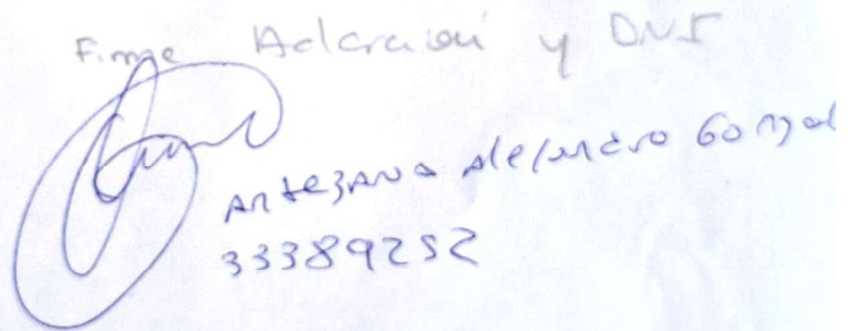 Firma Aclaración y DNI
Artezana Alejandro Gonzal
33389252